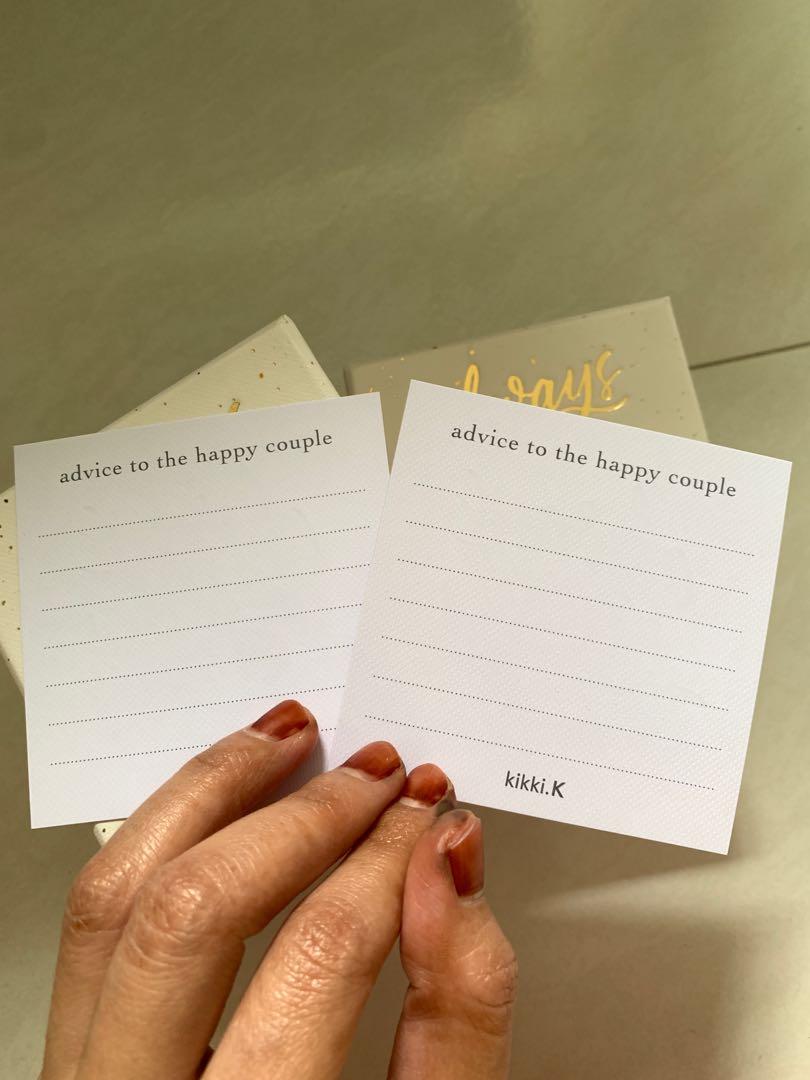 always
advice to the happy couple
advice to the happy couple
kikki.K